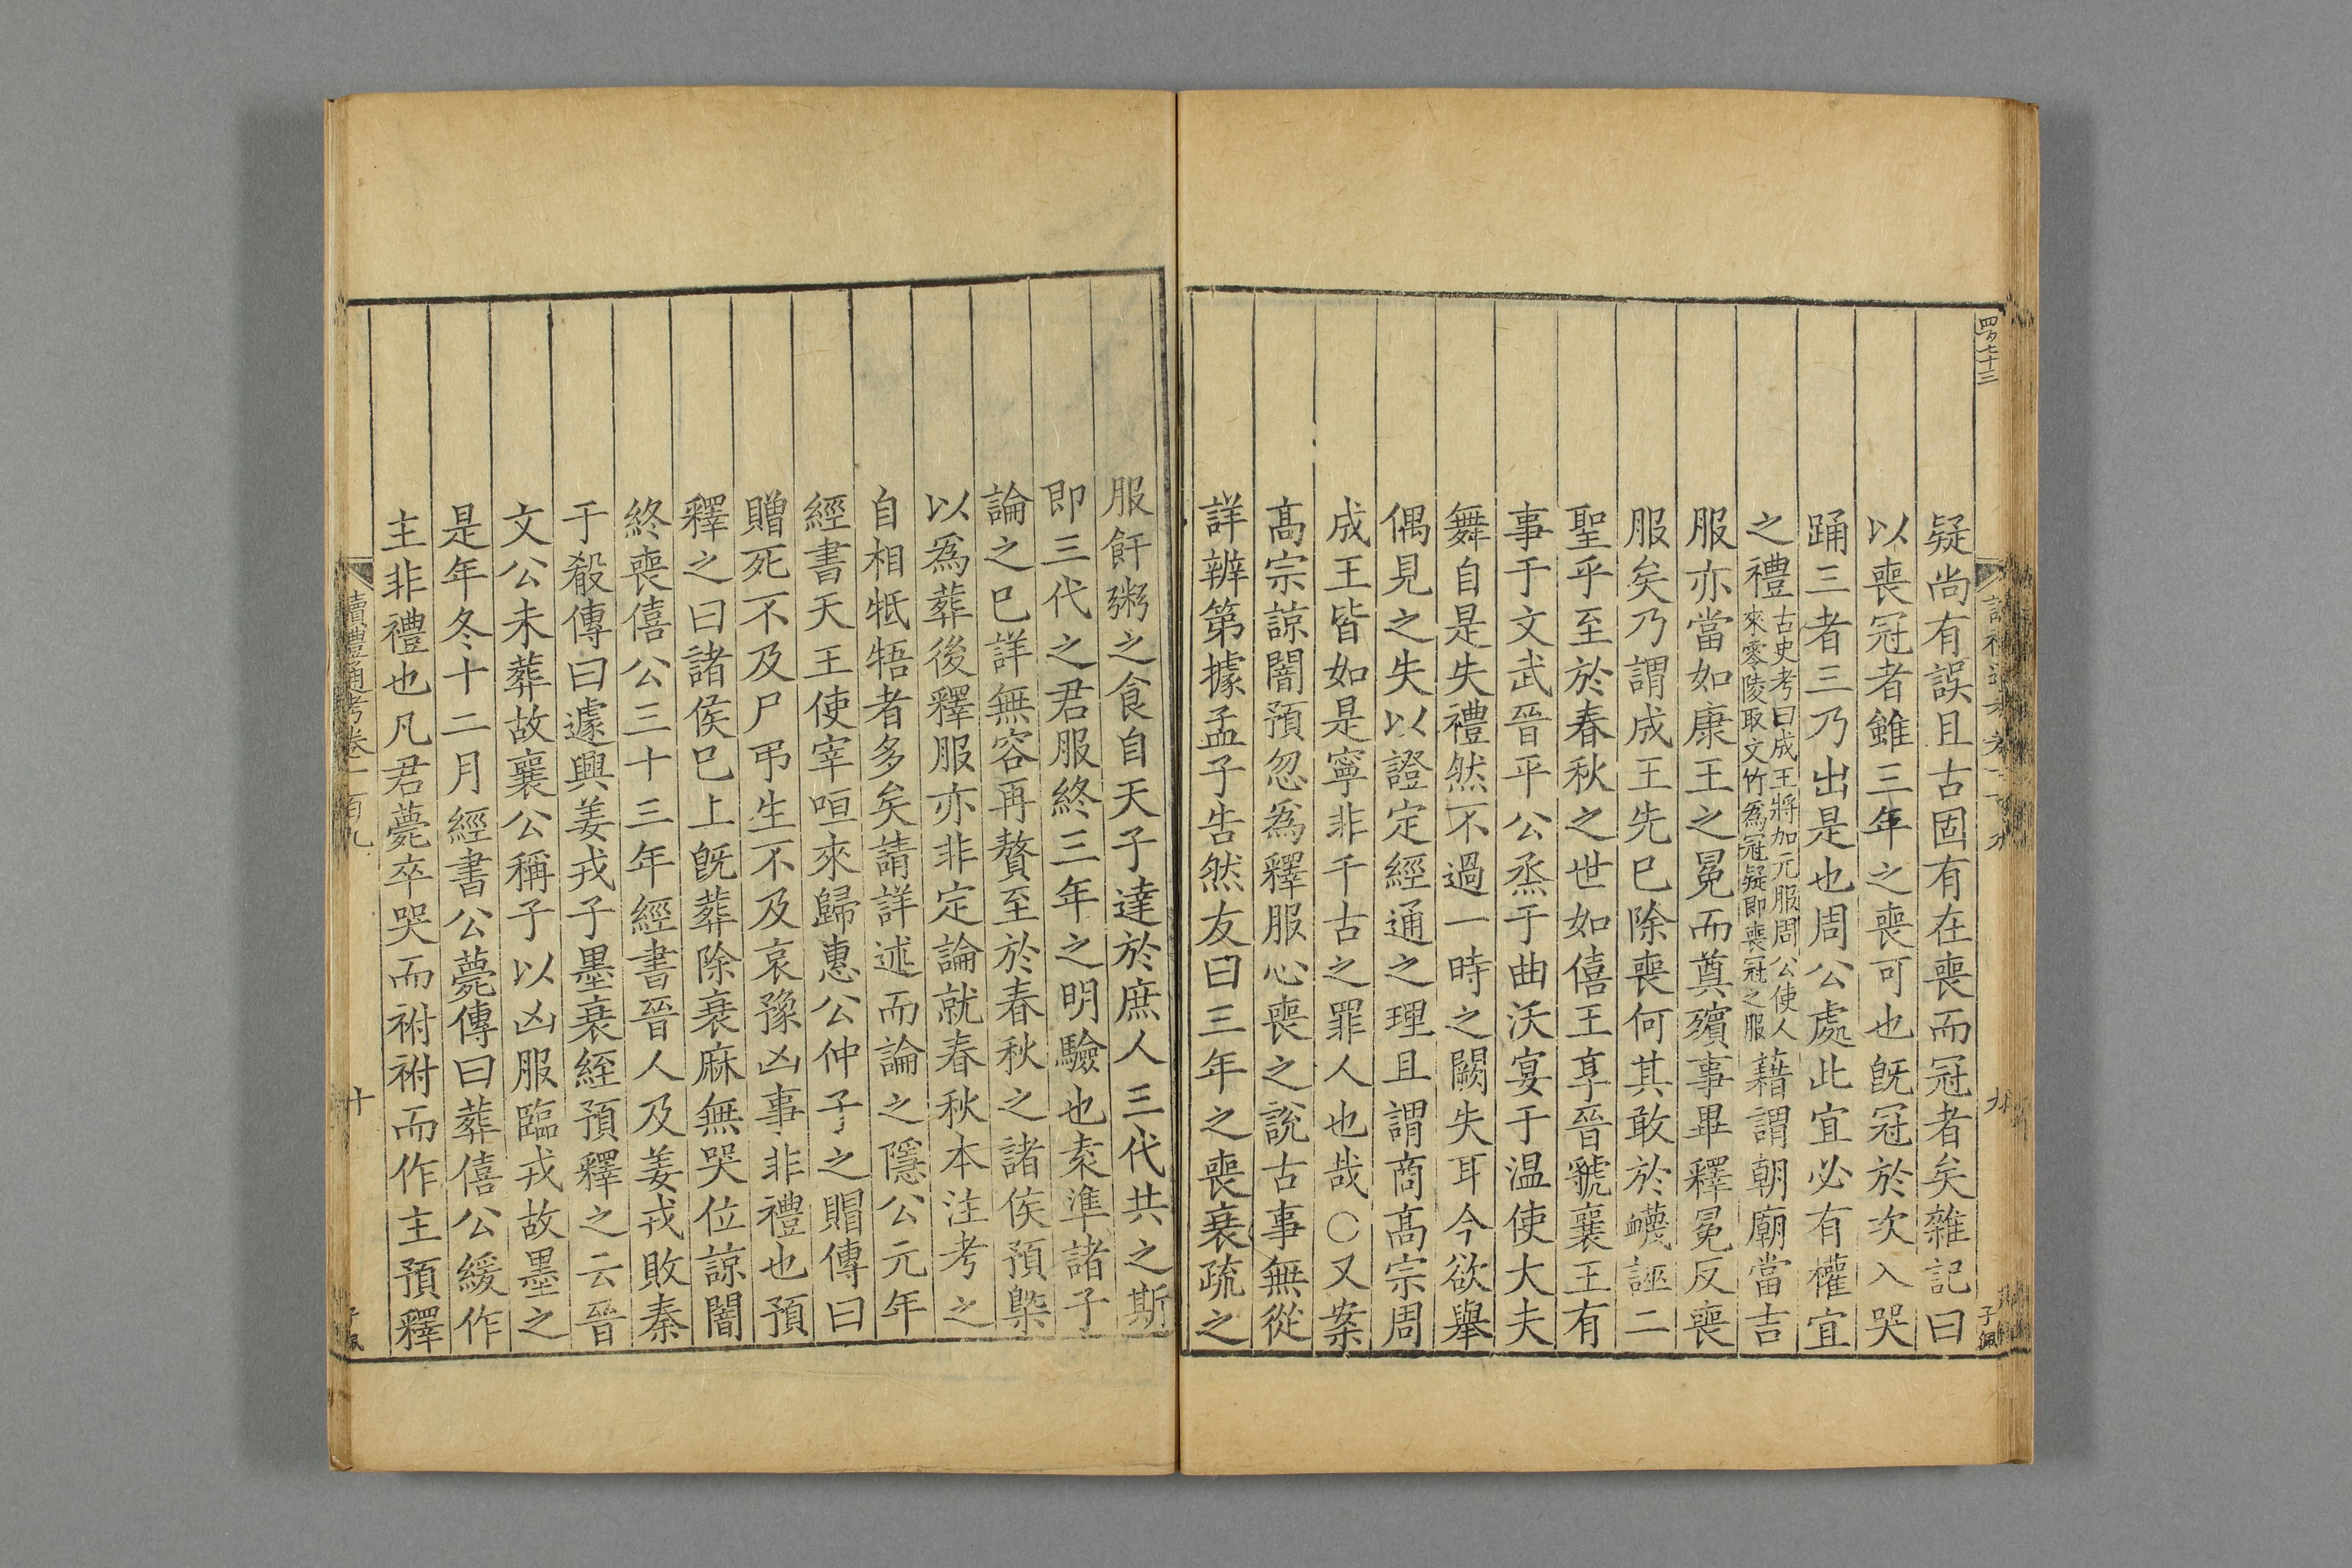 四百七十三
疑尚有誤且古固有在喪而冠者矣雜記曰
以喪冠者雖三年之喪可也既冠於次入哭
踊三者三乃出是也周公處此宜必有權宜
之禮古史考曰成王將加元服周公使人來零陵取文竹爲冠疑即喪冠之服藉謂朝廟當吉
服亦當如康王之冕而奠殯事畢釋冕反喪
服矣乃謂成王先已除喪何其敢於衊誣二
聖乎至於春秋之世如僖王享晉虢襄王有
事于文武晉平公烝于曲沃宴于温使大夫
舞自是失禮然不過一時之闕失耳今欲舉
偶見之失以證定經通之理且謂商髙宗周
成王皆如是寧非千古之罪人也哉○又案
髙宗諒闇預忽爲釋服心喪之說古事無從
詳辨第據孟子告然友曰三年之喪衰疏之
九
子佩
服飦粥之食自天子達於庶人三代共之斯
即三代之君服終三年之明驗也素準諸子
論之已詳無容再贅至於春秋之諸侯預槩
以爲葬後釋服亦非定論就春秋本注考之
自相牴牾者多矣請詳述而論之隱公元年
經書天王使宰咺來歸惠公仲子之賵傳曰
贈死不及尸弔生不及哀豫凶事非禮也預
釋之曰諸侯已上既葬除衰麻無哭位諒闇
終喪僖公三十三年經書晉人及姜戎敗秦
于殽傳曰遽興姜戎子墨衰絰預釋之云晉
文公未葬故襄公稱子以凶服臨戎故墨之
是年冬十二月經書公薨傳曰葬僖公緩作
主非禮也凡君薨卒哭而祔祔而作主預釋
讀禮通考卷一百九
十